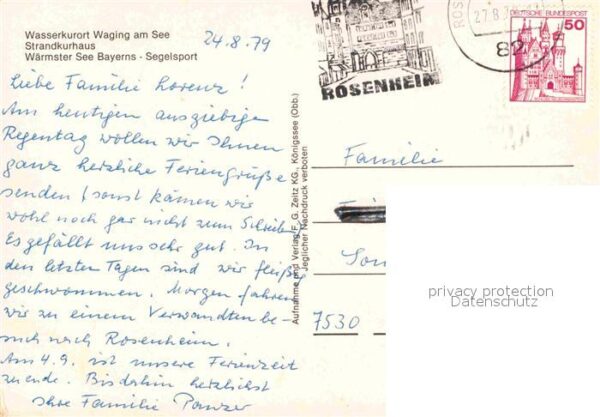 Wasserkurort Waging am See
Strandkurhaus
Wärmster See Bayerns - Segelsport
24.8.79
Liebe Familie Lorenz!
Am heutigen ausgiebigen
Regentag wollen wir Ihnen
ganz herzliche Feriengrüße
senden (sonst kämen wir
wohl noch gar nicht zum Schreiben
Es gefällt uns sehr gut. In
den letzten Tagen sind wir fleißig
geschwommen. Morgen fahren
wir zu einem Verwandtenbe-
such nach Rosenheim.
Am 4.9. ist unsere Ferienzeit
zuende. Bis dahin herzlichst
Ihre Familie Panzer
Aufnahme und Verlag F. G. Zeitz KG., Königssee (Obb.)
Jeglicher Nachdruck verboten
ROSENHEIM
ROS
27.8.
82
DEUTSCHE BUNDESPOST
50
Familie
7530
privacy protection
Datenschutz